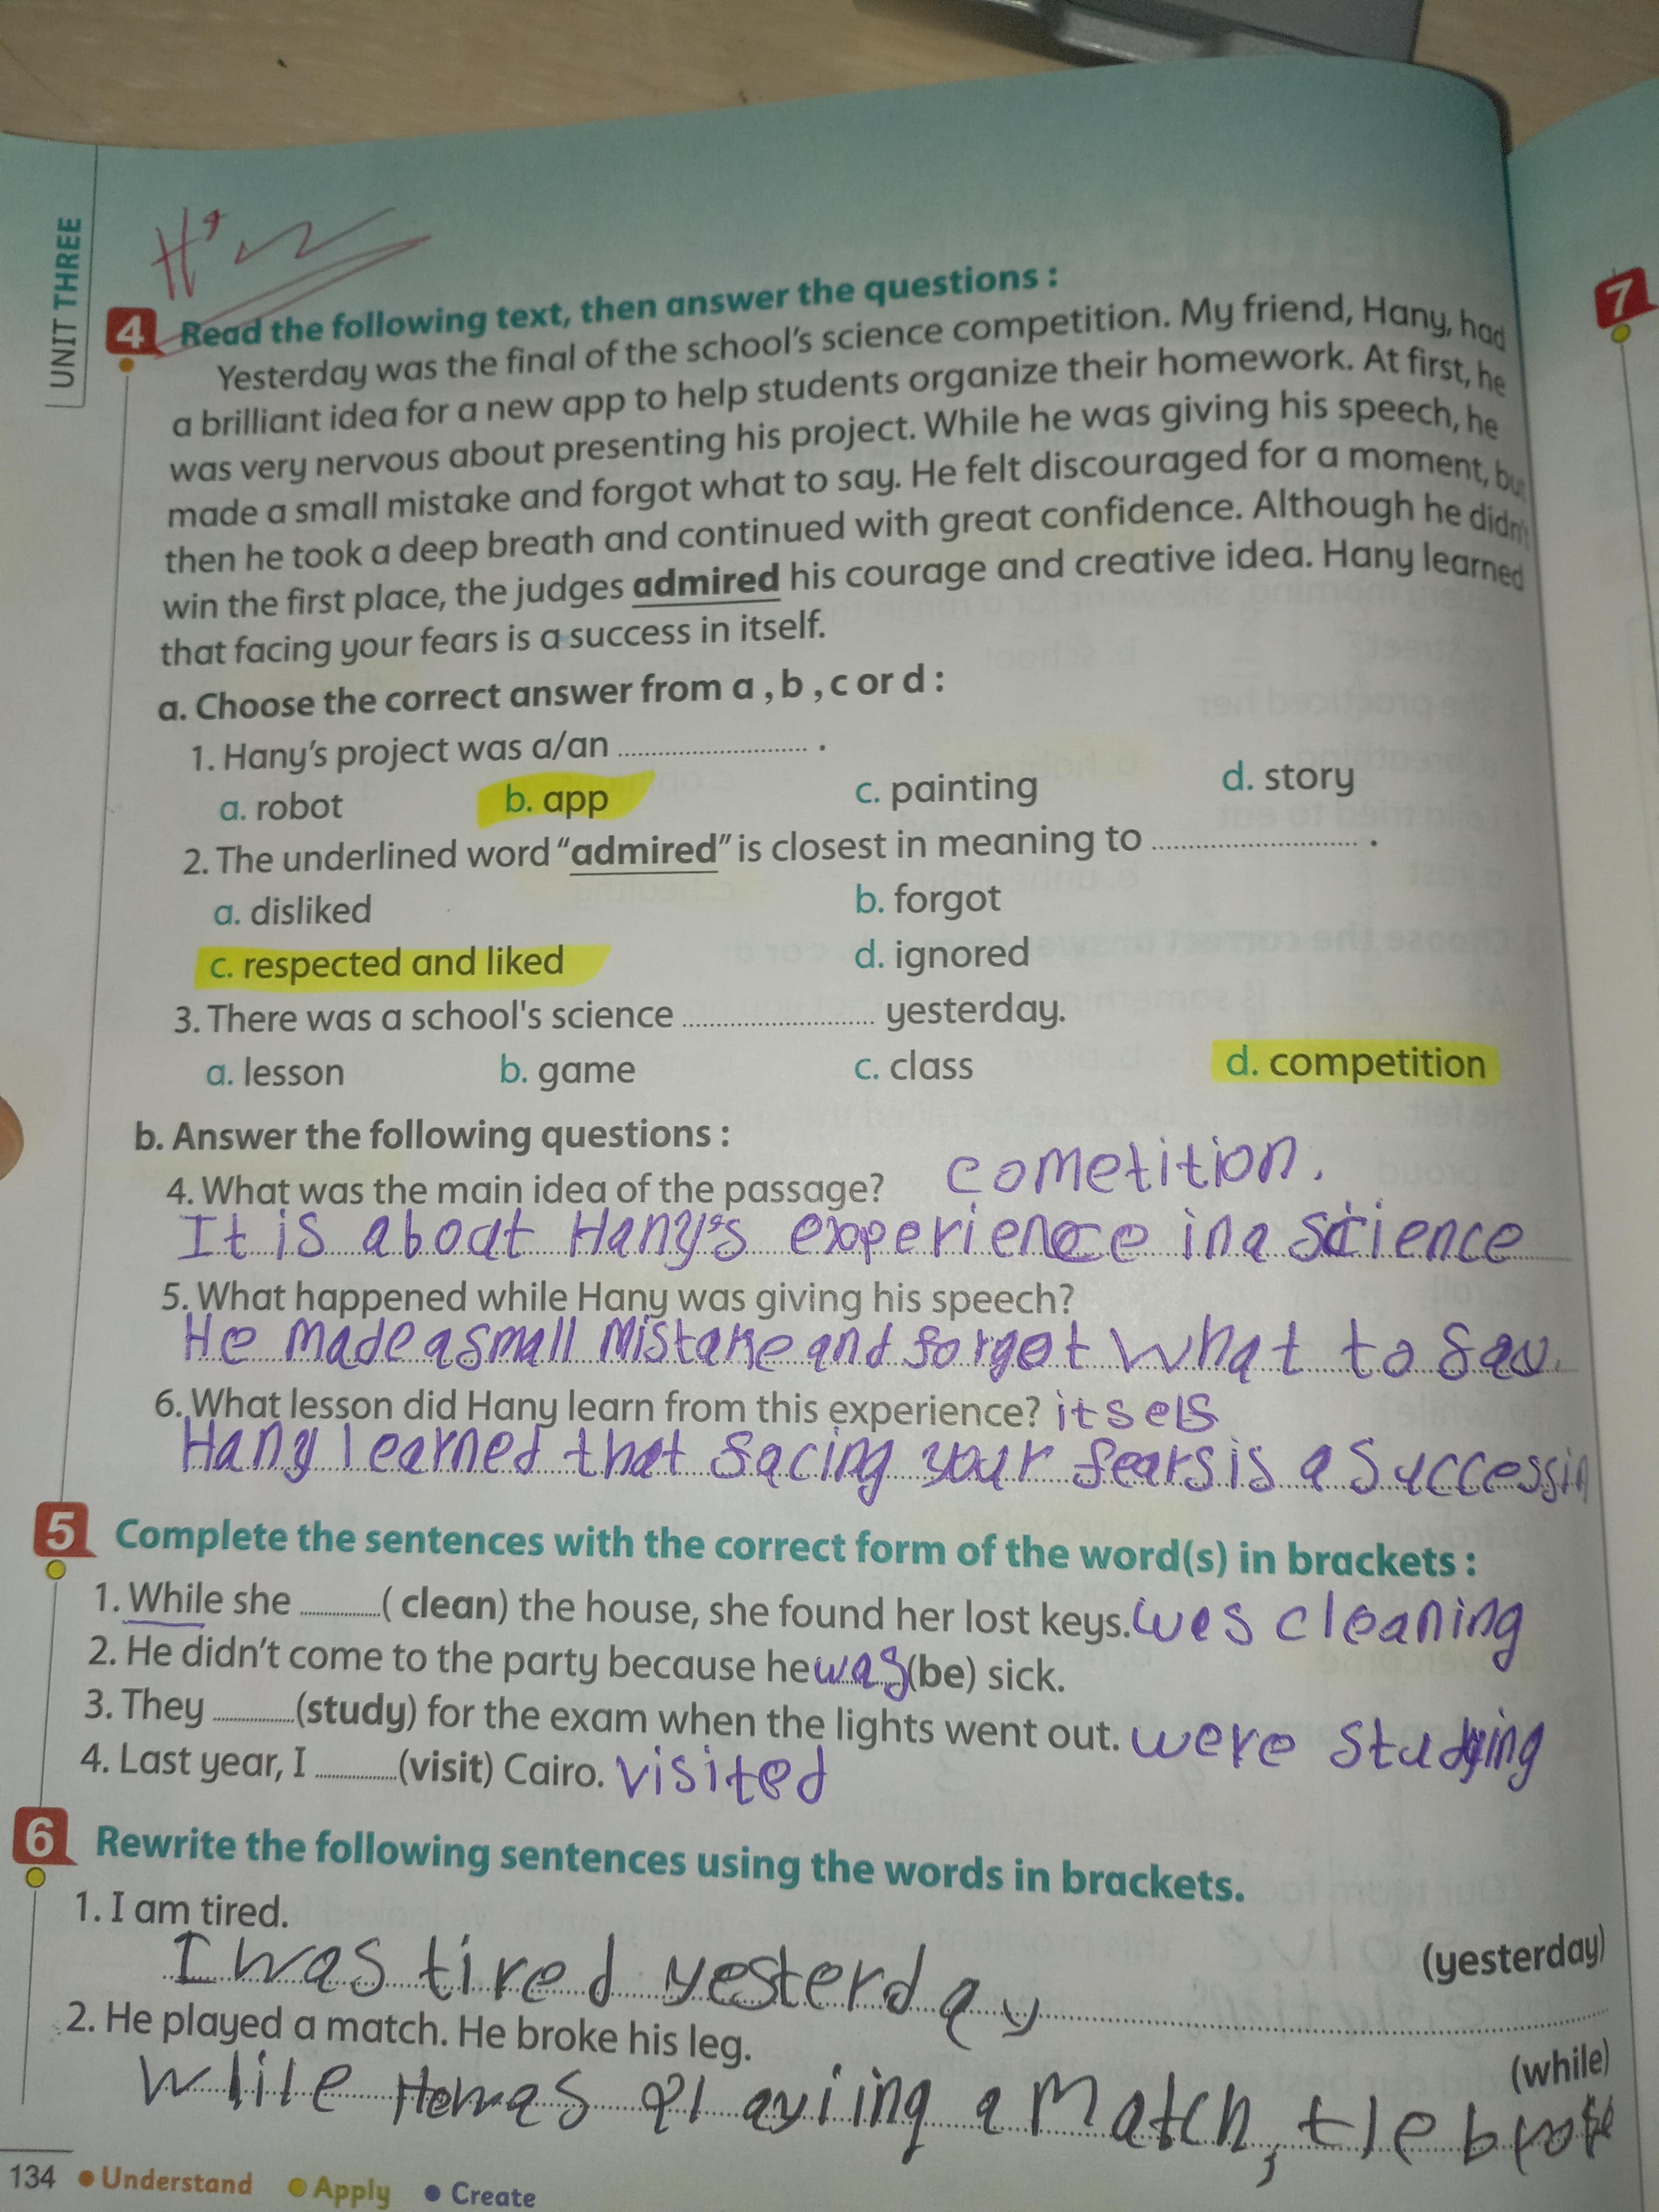 UNIT THREE
H.w
7
4 Read the following text, then answer the questions :
Yesterday was the final of the school's science competition. My friend, Hany, had
a brilliant idea for a new app to help students organize their homework. At first, he
was very nervous about presenting his project. While he was giving his speech, he
made a small mistake and forgot what to say. He felt discouraged for a moment, but
then he took a deep breath and continued with great confidence. Although he didn't
win the first place, the judges admired his courage and creative idea. Hany learned
that facing your fears is a success in itself.
a. Choose the correct answer from a , b , c or d :
1. Hany's project was a/an .................... .
a. robot b. app c. painting d. story
2. The underlined word "admired" is closest in meaning to .................... .
a. disliked b. forgot
c. respected and liked d. ignored
3. There was a school's science .................... yesterday.
a. lesson b. game c. class d. competition
b. Answer the following questions :
4. What was the main idea of the passage? cometition.
It is aboat Hany's experience in a science
5. What happened while Hany was giving his speech?
He made a small mistake and forget what to say.
6. What lesson did Hany learn from this experience? itself
Hany learned that facing your fears is a success in
5 Complete the sentences with the correct form of the word(s) in brackets :
1. While she ..........( clean) the house, she found her lost keys. wes cleaning
2. He didn't come to the party because he was (be) sick.
3. They ..........(study) for the exam when the lights went out. were studying
4. Last year, I ..........(visit) Cairo. visited
6 Rewrite the following sentences using the words in brackets.
1. I am tired. (yesterday)
I was tired yesterday
2. He played a match. He broke his leg. (while)
While He was playiing a match, He broke
134 Understand Apply Create